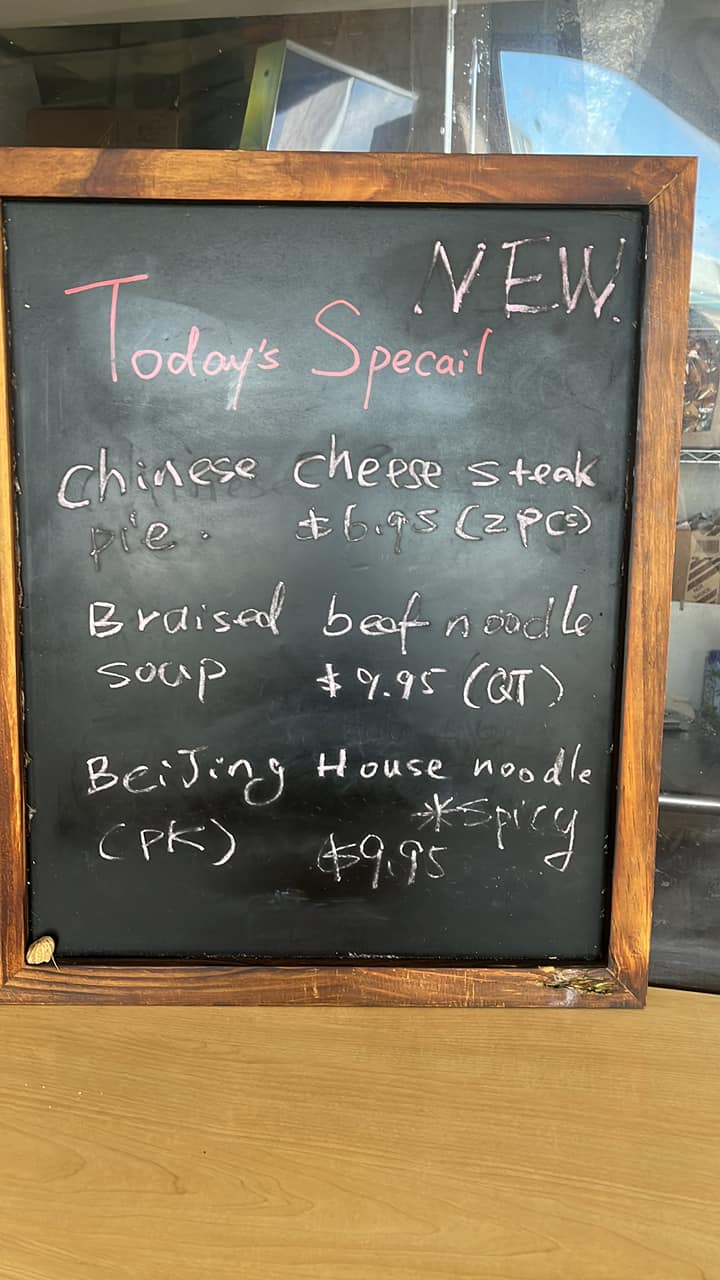 NEW.
Today's Specail
Chinese cheese steak
pie. $6.95 (2pcs)
Braised beef noodle
soup $9.95 (QT)
BeiJing House noodle
*spicy
(PK) $9.95